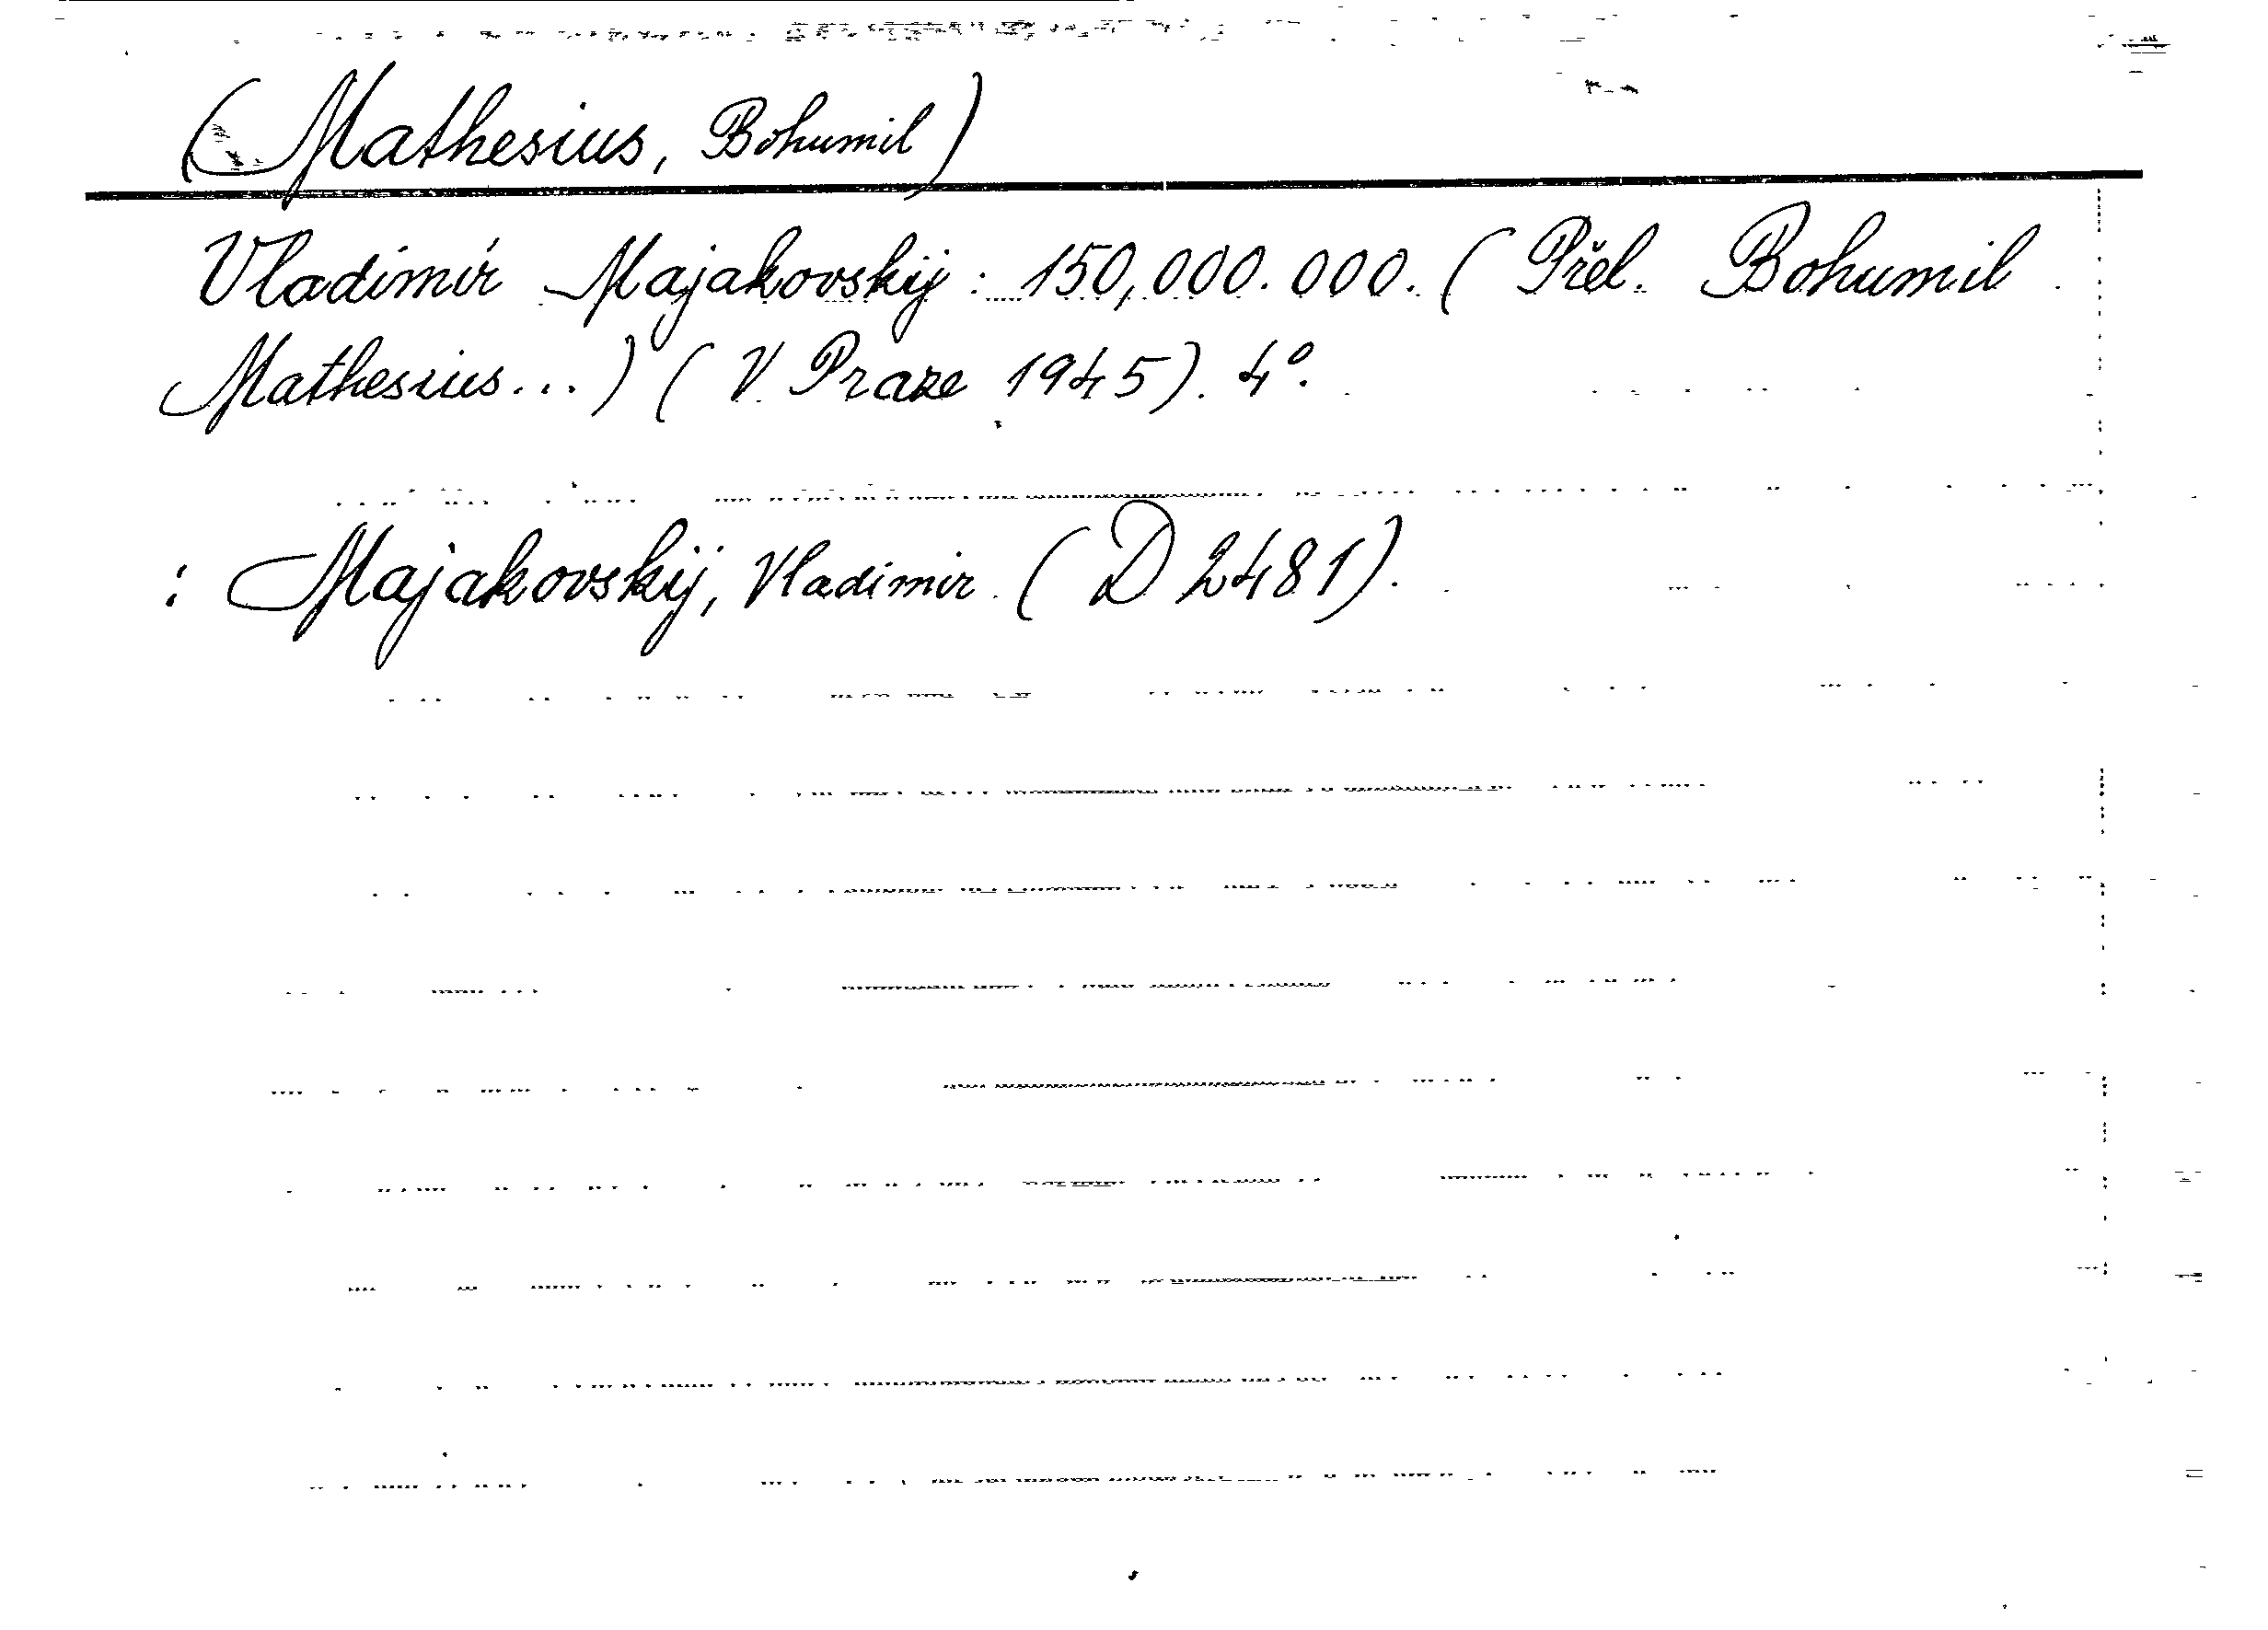 (Mathesius, Bohumil)
Vladimír Majakovskij: 150,000.000. (Přel. Bohumil
Mathesius...) (V Praze 1945). 4°.
: Majakovskij, Vladimir. (D 2481).